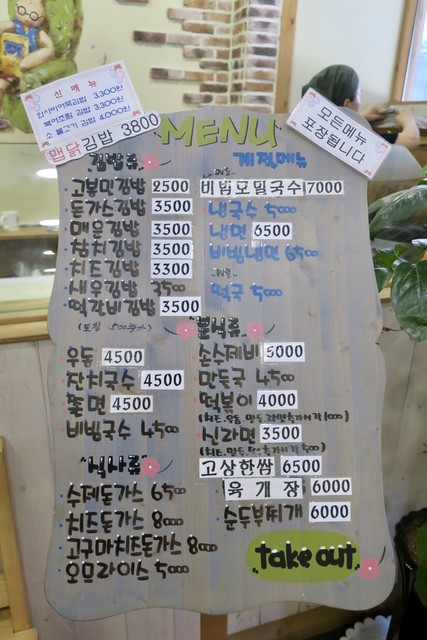 신 메뉴
와사비어묵김밥 3,300원
볶어조림 김밥 3,300원
소 불고기 김밥 4,000원
맵닭김밥 3800
모든메뉴
포장됩니다
MENU
김밥류
고봉민김밥 2500
돈가스김밥 3500
매운김밥 3500
참치김밥 3500
치즈김밥 3300
새우김밥 3500
떡갈비김밥 3500
계절메뉴
비빔모밀국수 7000
냉국수 5000
냉면 6500
비빔냉면 6500
떡국 5000
우동 4500
잔치국수 4500
쫄면 4500
비빔국수 4500
분식류
손수제비 5000
만두국 4500
떡볶이 4000
신라면 3500
고상한쌈 6500
육개장 6000
순두부찌개 6000
식사류
수제돈가스 6500
치즈돈가스 8000
고구마치즈돈가스 8000
오므라이스 5000
take out